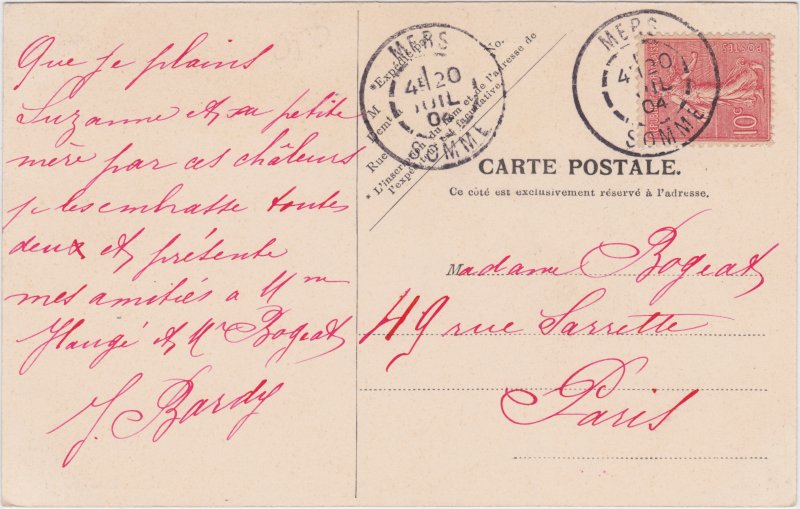 Que je plains
Suzanne et sa petite
mère par ces châleurs
je les embrasse toutes
deux et présente
mes amitiés a Mme
Haugé et Mr Bogeat
J. Bardy
MERS
4E 20
JUIL
04
SOMME
*Expéditeur
No.
M
Demt
Rue
* L'insertion du nom et de l'adresse de
l'expéditeur est facultative.
MERS
4E 20
JUIL
04
SOMME
POSTES
10
CARTE POSTALE.
Ce côté est exclusivement réservé à l'adresse.
Madame Bogeat
49 rue Sarrette
Paris